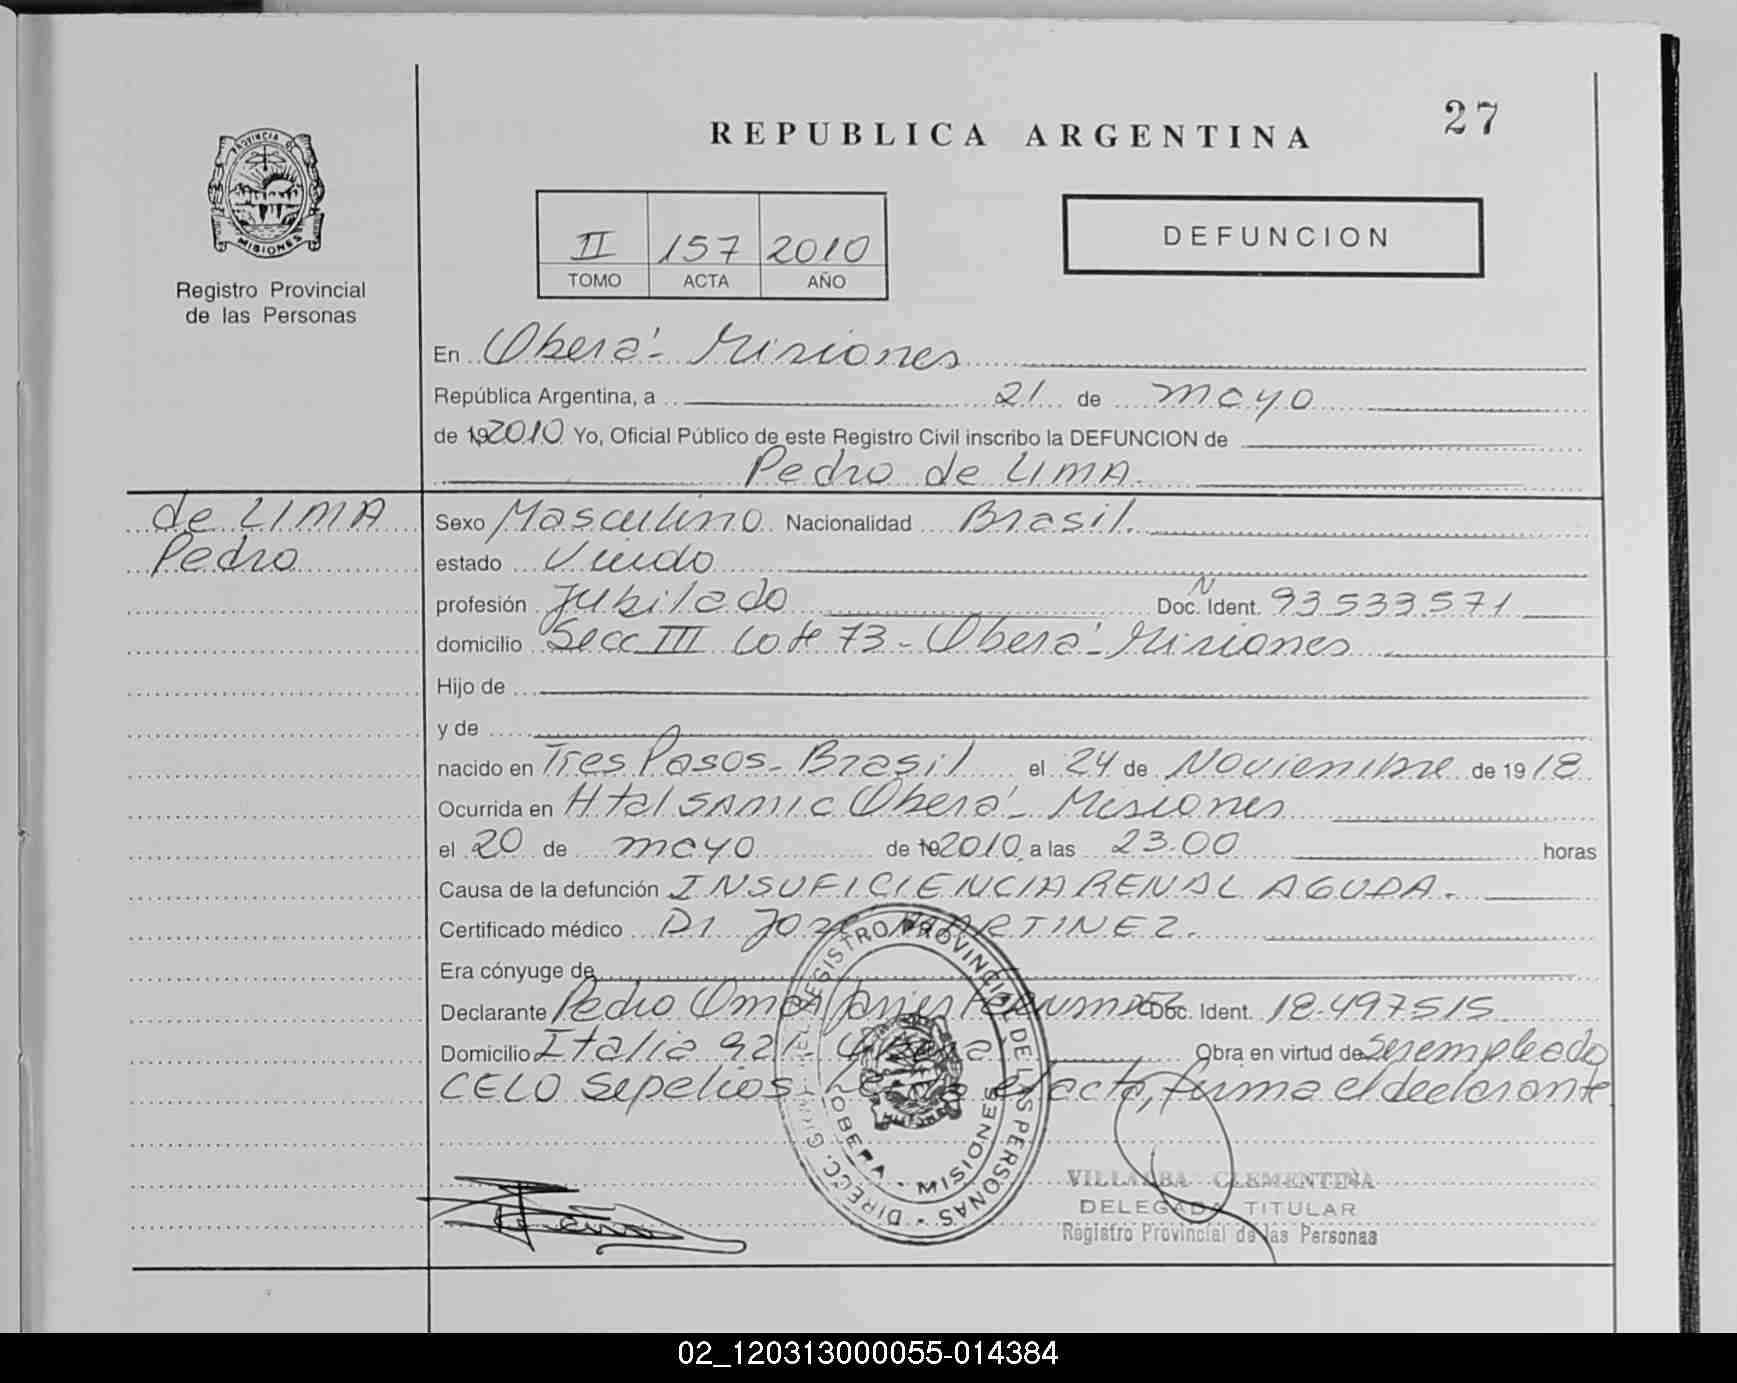 27
REPUBLICA ARGENTINA
PROVINCIA DE
MISIONES
Registro Provincial
de las Personas
II 157 2010
TOMO ACTA AÑO
DEFUNCION
En Oberá - Misiones
República Argentina, a 21 de mayo
de 19 2010 Yo, Oficial Público de este Registro Civil inscribo la DEFUNCION de
Pedro de LIMA.
de LIMA
Pedro
Sexo Masculino Nacionalidad Brasil.
estado Viudo
profesión Jubilado Doc. N Ident. 93533571
domicilio Secc III Lote 73 - Oberá - Misiones
Hijo de
y de
nacido en Tres Pasos - Brasil el 24 de Noviembre de 19 18
Ocurrida en Htal SAMIC Oberá - Misiones
el 20 de mayo de 19 2010 a las 23.00 horas
Causa de la defunción INSUFICIENCIA RENAL AGUDA.
Certificado médico Dr Jose MARTINEZ.
Era cónyuge de
Declarante Pedro Omar Javier Doc. Ident. 18.497515
Domicilio Italia 921 Oberá Obra en virtud de ser empleado
CELO Sepelios. acta, firma el declarante
DIRECC. GRAL. DEL REGISTRO PROVINCIAL DE LAS PERSONAS
OBERA - MISIONES
VILLALBA CLEMENTINA
DELEGADA TITULAR
Registro Provincial de las Personas
02_120313000055-014384